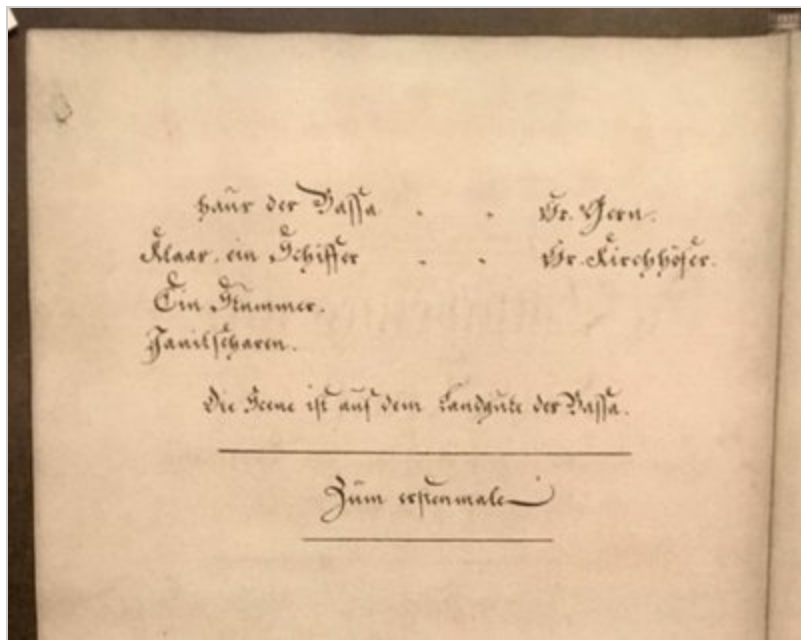 haus der Bassa . . Hr. Gern.
Klaar, ein Schiffer . . Hr. Kirchhöfer.
Ein Stummer.
Janitscharen.
Die Scene ist auf dem Landgute der Bassa.
Zum erstenmale